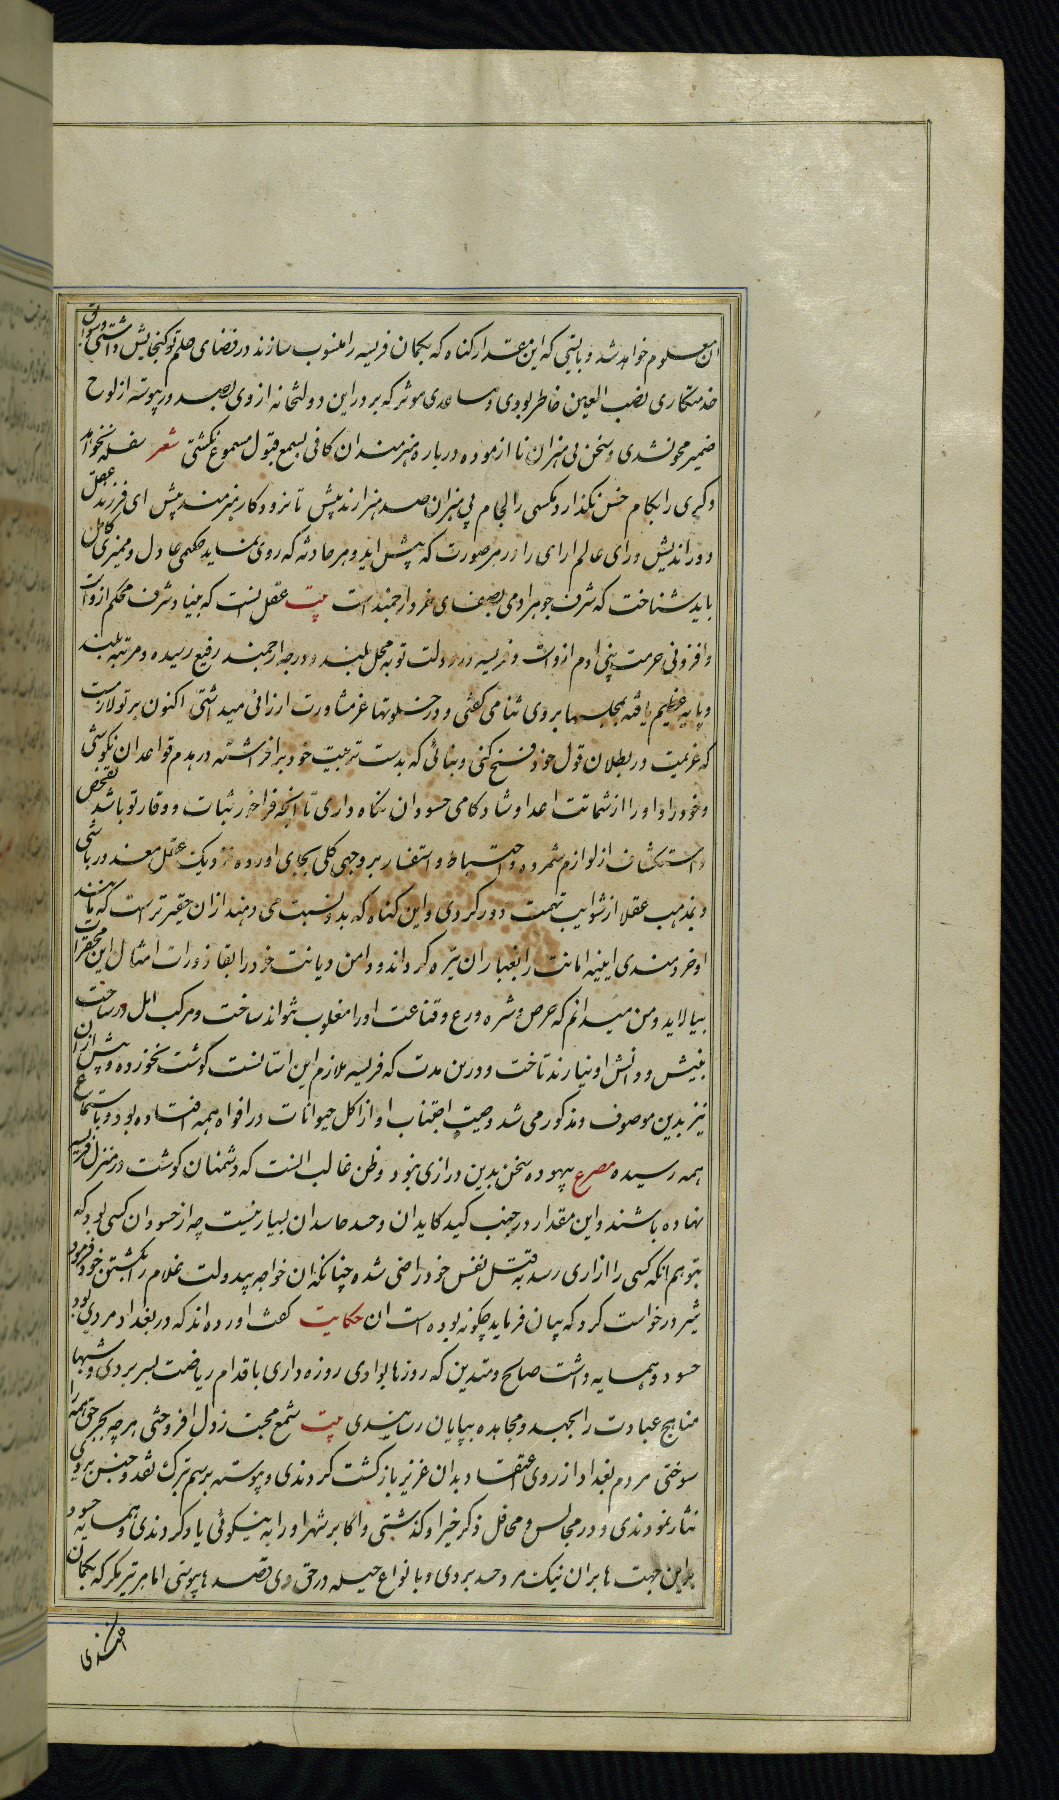 آن معلوم خواهد شد و بایستی که این مقدار کناه که بکمان فریسه را منسوب سازند در فضای حلم تو کنجایش داشتی و سوابق
خدمتکاری نصب العین خاطر بودی و مساعدی موثر که بر در این دولتخانه از وی بصدور پیوسته از لوح
ضمیر محو نشدی و سخن بی هنران نا ازموده درباره هنرمندان کافی بسمع قبول مسموع نکشتی شعر سفله نخواهد
دکری را بکام خس نکذارد مکسی را بجام پی هنران صد هنر ارند پیش تا نرود کار هنرمند پیش ای فرزند عقل
دور اندیش و رای عالم ارای را در هر صورت که پیش اید و هر حادثه که روی نماید حکمی عادل و ممیزی کامل
باید شناخت که شرف جوهر ادمی بصفای خرد ارجمند است بیت عقل است که بنیاد شرف محکم ازوست
و افزونی حرمت بنی ادم ازوست و فریسه در دولت تو به محل بلند و درجه ارجمند رفیع رسیده و مرتبه بلند
و پایه عظیم یافته بمجلسها بر وی ثنا می کفتی و در خلوتها عز مشاورت ارزانی میداشتی اکنون بر تو لازمست
که عزیمت در بطلان قول خود فسخ کنی و بنائی که بدست تربیت خود برافراشته در هدم قواعد ان نکوشی
و خود را و او را از شماتت اعدا و شادکامی حسودان نکاه داری تا انچه فراخور ثبات و وقار تو باشد تفحص
و استکشاف از لوازم شمرده و احتیاط و استفسار بر وجهی کلی بجای اورده نزدیک عقل معذور باشی
و بمذهب عقلا از شوایب تهمت دور کردی و این کناه که بدو نسبت می دهند از ان حقیرتر است که مانند
او خردمندی ایینه امانت را بغبار ان تیره کرداند و دامن دیانت خود را بقاذورات امثال این محقرات
بیالاید و من میدانم که حرص و شره ورع و قناعت او را مغلوب نتواند ساخت و مرکب امل در ساحت
بینش و دانش او نیارند تاخت و درین مدت که فریسه ملازم این استانست کوشت نخورده و پیش از ان
نیز بدین موصوف و مذکور می شد و صیت اجتناب او از اکل حیوانات در افواه همه افتاده بود و باستماع
همه رسیده مصرع بیهوده سخن بدین درازی نبود و ظن غالب انست که دشمنان کوشت در منزل فریسه
نهاده باشند و این مقدار در جنب کید کایدان و حسد حاسدان بسیار نیست چه از حسودان کسی بود که
بتوهم انکه کسی را ازاری رسد به قتل نفس خود راضی شده چنانکه ان خواجه بیدولت غلام را بکشتن خود فرمود
شیر درخواست کرد که بیان فرماید چکونه بوده است ان حکایت کفت اورده اند که در بغداد مردی بود
حسود و همسایه داشت صالح و متدین که روزها بوادی روزه داری باقدام ریاضت بسر بردی و شبها
مناهج عبادت را بجهد و مجاهده بپایان رسانیدی بیت شمع محبت ز دل افروختی هر چه بجز حق همه را
سوختی مردم بغداد از روی اعتقاد بدان عزیز بازکشت کردندی و پیوسته برسم تبرک نقد و جنس بر وی
نثار نمودندی و در مجالس و محافل ذکر خیر او کذشتی و اکابر شهر او را به نیکوئی یاد کردندی و همسایه حسود
بدین جهت ها بر ان نیک مرد حسد بردی و بانواع حیله در حق وی قصدها پیوستی اما هر تیر مکر که بکمان